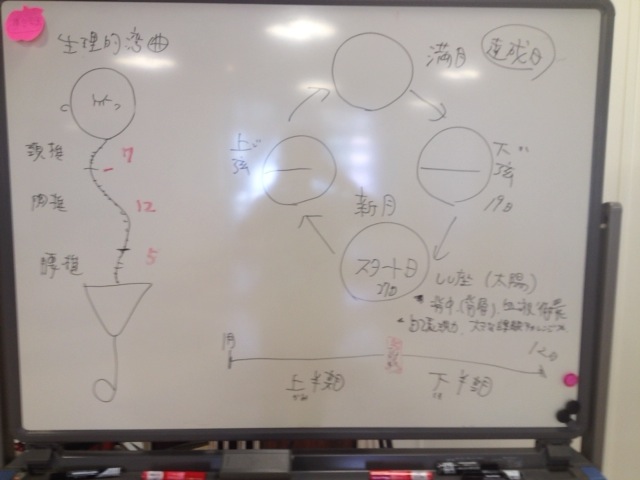 生理的湾曲
頚椎 7
胸椎 12
腰椎 5
満月
達成日
上弦
下弦
19日
新月
スタート日
27日
しし座(太陽)
1月
上半期
下半期
12月